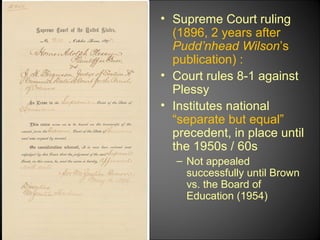 Supreme Court of the United States,
October Term, 1895
Homer Adolph Plessy
Plaintiff in Error
vs.
J. H. Ferguson, Judge of Section "A"
In Error to the Supreme Court of the State of
Louisiana
This cause came on to be heard on the transcript of the
record from the Supreme Court of the State of
Louisiana
and was argued by counsel.
On consideration whereof, It is now here ordered and
adjudged by this Court that the judgment of the said Supreme
Court, in this cause, be, and the same is hereby, affirmed
• Supreme Court ruling
(1896, 2 years after
Pudd'nhead Wilson's
publication) :
• Court rules 8-1 against
Plessy
• Institutes national
“separate but equal”
precedent, in place until
the 1950s / 60s
– Not appealed
successfully until Brown
vs. the Board of
Education (1954)